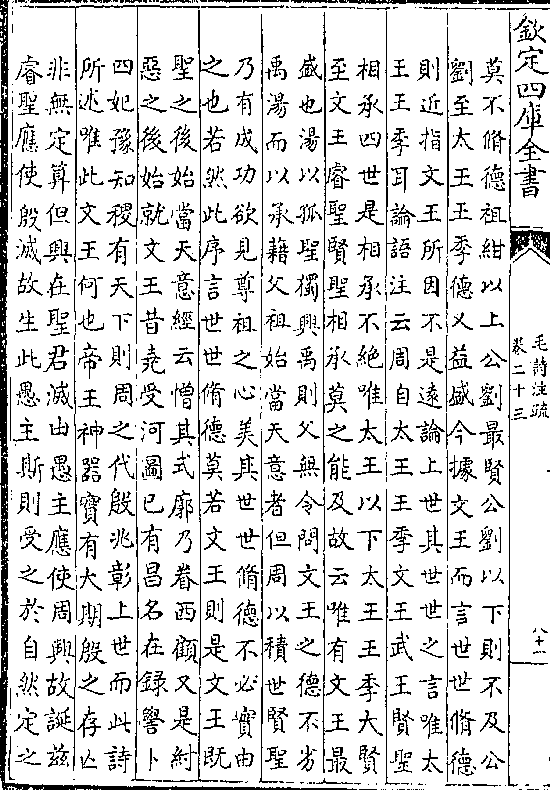 欽定四庫全書
毛詩注疏
卷二十三
八十一
莫不脩德祖紺以上公劉最賢公劉以下則不及公
劉至太王王季德又益盛今據文王而言世世脩德
則近指文王所因不是遠論上世其世世之言唯太
王王季耳論語注云周自太王王季文王武王賢聖
相承四世是相承不絶唯太王以下太王王季大賢
至文王睿聖賢聖相承莫之能及故云唯有文王最
盛也湯以孤聖獨興禹則父無令問文王之德不劣
禹湯而以承藉父祖始當天意者但周以積世賢聖
乃有成功欲見尊祖之心美其世世脩德不必實由
之也若然此序言世世脩德莫若文王則是文王既
聖之後始當天意經云憎其式廓乃眷西顧又是紂
惡之後始就文王昔堯受河圖已有昌名在録嚳卜
四妃豫知稷有天下則周之代殷兆彰上世而此詩
所述唯此文王何也帝王神器實有大期殷之存亡
非無定算但興在聖君滅由愚主應使周興故誕兹
睿聖應使殷滅故生此愚主斯則受之於自然定之